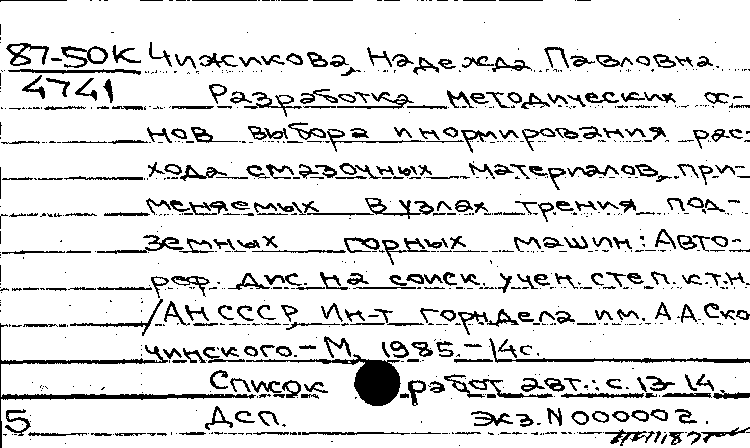 87-50К Чижикова, Надежда Павловна.
4741 Разработка методических ос-
нов выбора и нормирования рас-
хода смазочных материалов, при-
меняемых в узлах трения под-
земных горных машин: Авто-
реф. дис. на соиск. учен. степ. к.т.н.
/АН СССР, Ин-т горн. дела им. А.А. Ско
чинского. – М., 1985. – 14 с.
Список работ авт.: с. 13-14.
5 Дсп. Экз. N 000002.